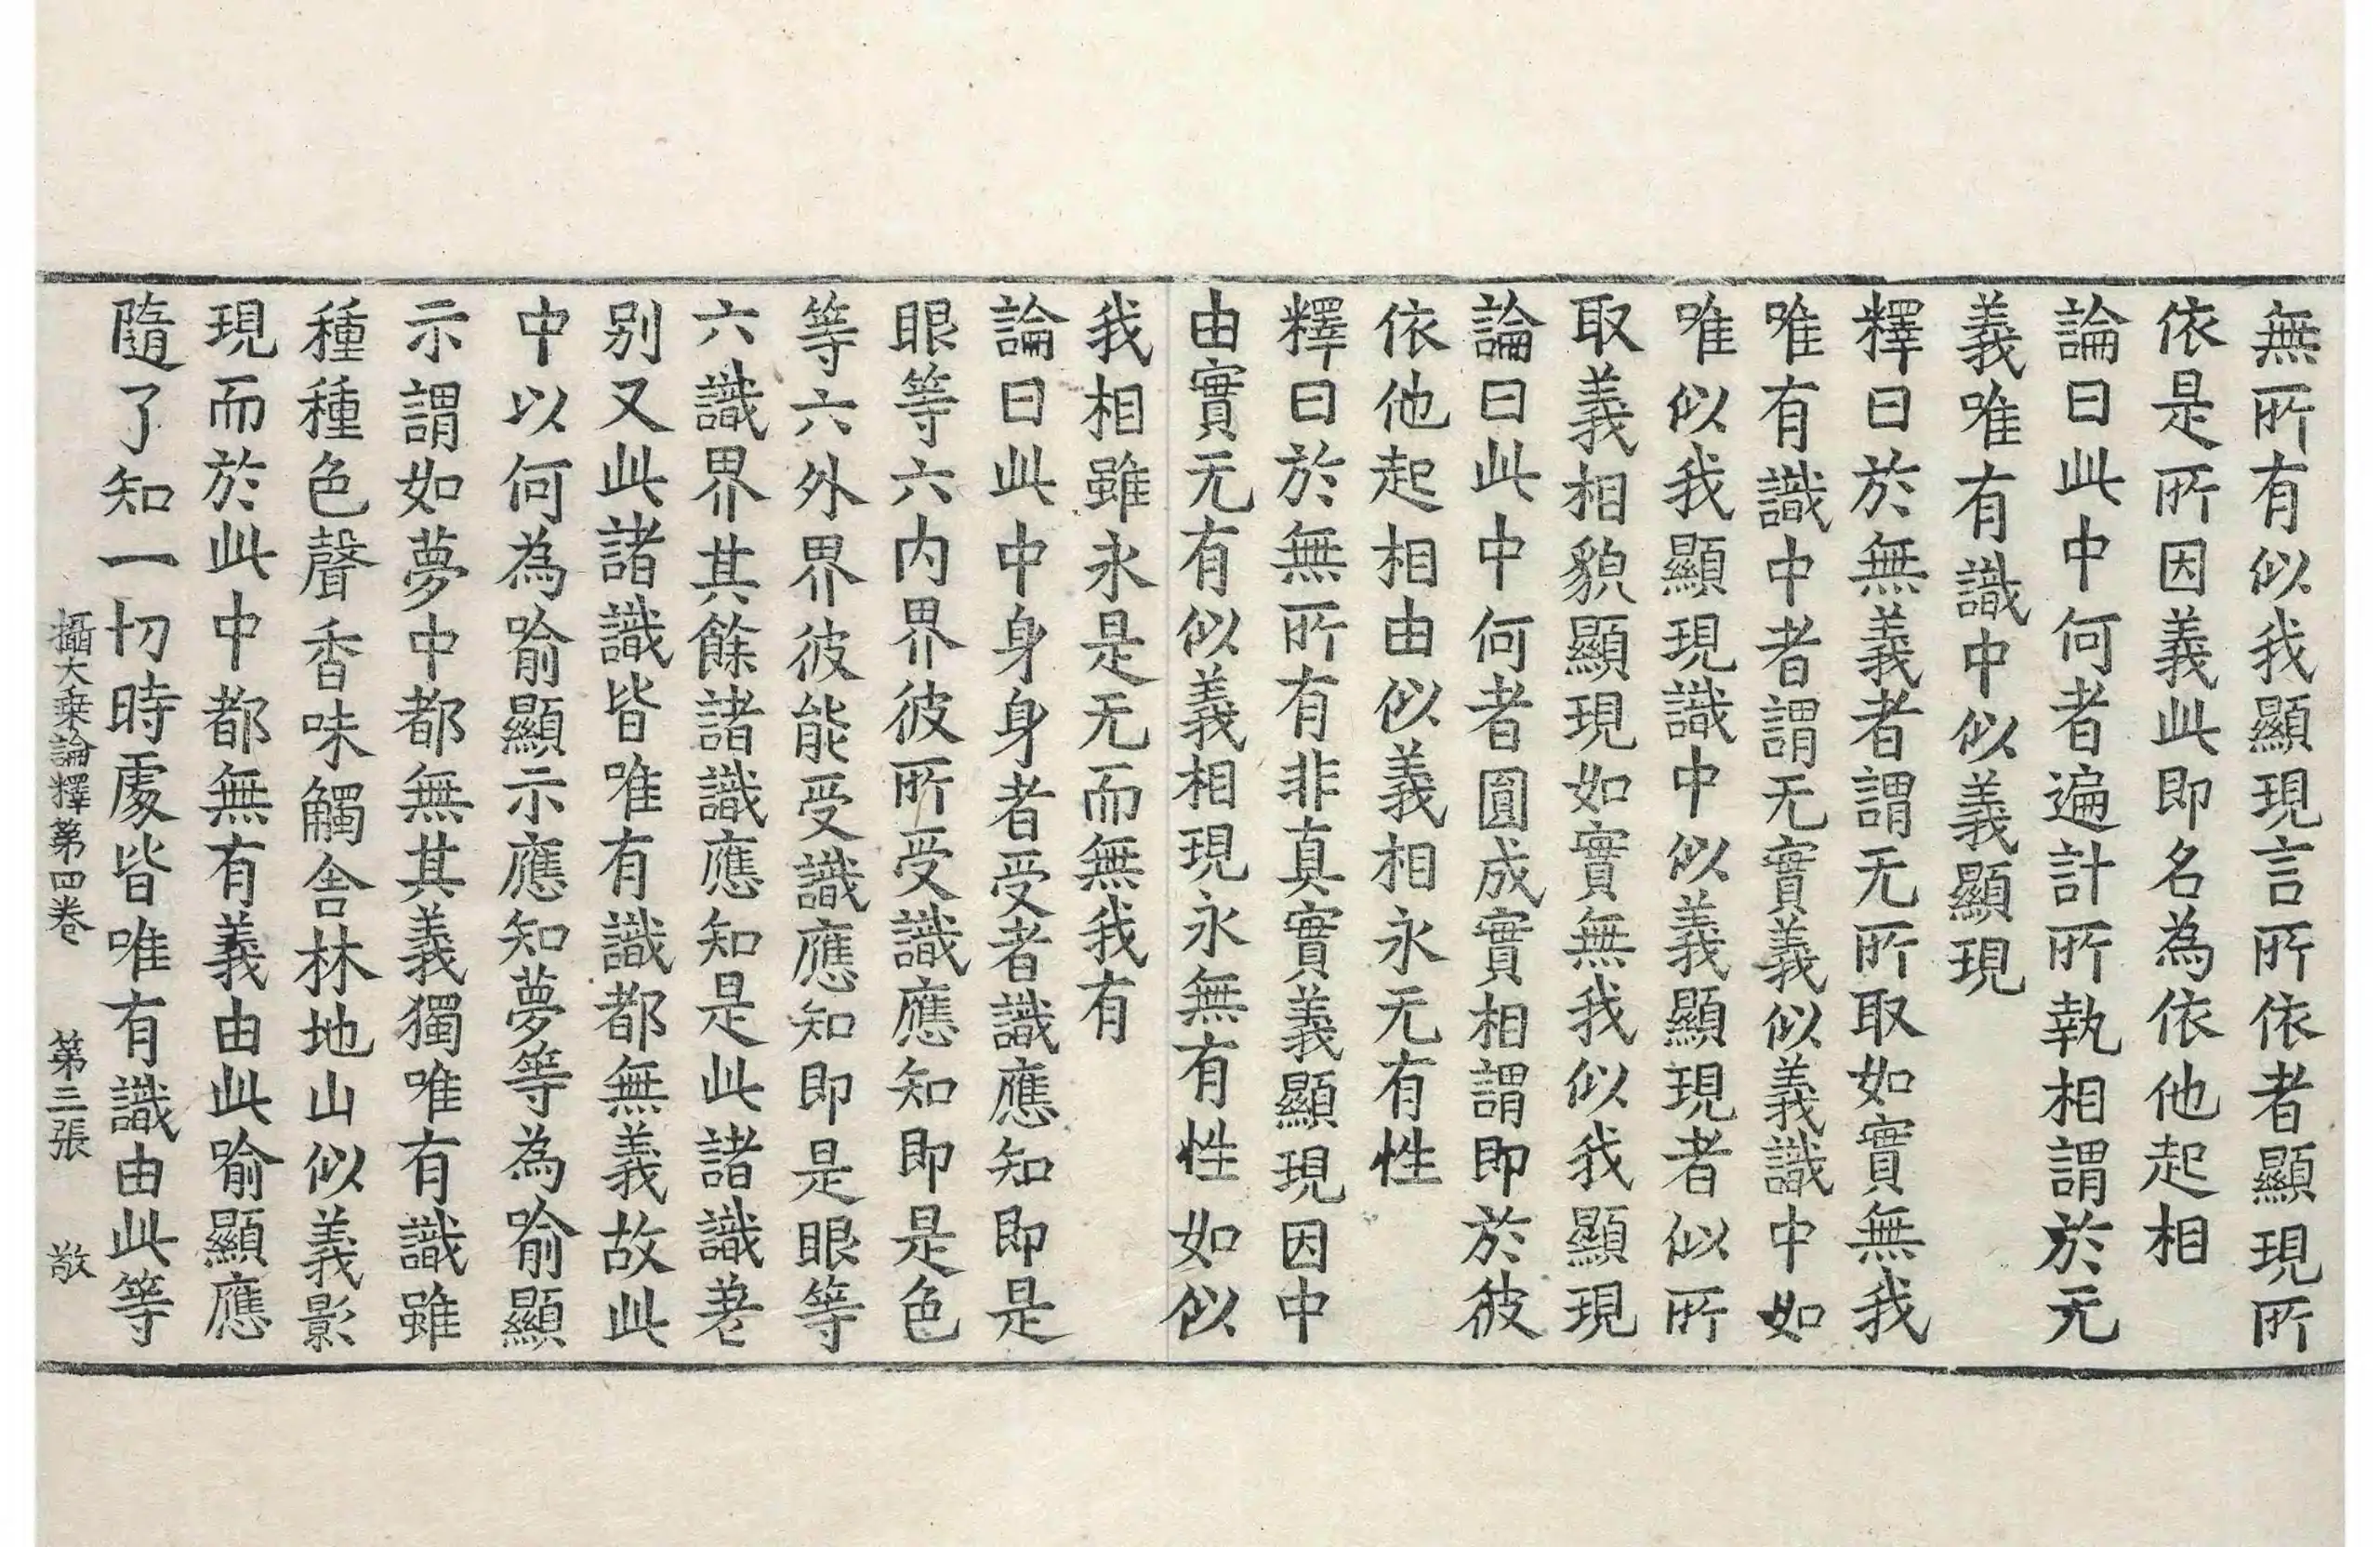 無所有似我顯現言所依者顯現所
依是所因義此即名為依他起相
論曰此中何者遍計所執相謂於无
義唯有識中似義顯現
釋曰於無義者謂无所取如實無我
唯有識中者謂无實義似義識中如
唯似我顯現識中似義顯現者似所
取義相貌顯現如實無我似我顯現
論曰此中何者圓成實相謂即於彼
依他起相由似義相永无有性
釋曰於無所有非真實義顯現因中
由實无有似義相現永無有性如似
我相雖永是无而無我有
論曰此中身身者受者識應知即是
眼等六内界彼所受識應知即是色
等六外界彼能受識應知即是眼等
六識界其餘諸識應知是此諸識差
别又此諸識皆唯有識都無義故此
中以何為喻顯示應知夢等為喻顯
示謂如夢中都無其義獨唯有識雖
種種色聲香味觸舍林地山似義影
現而於此中都無有義由此喻顯應
隨了知一切時處皆唯有識由此等
攝大乗論釋第四卷 第三張 敬